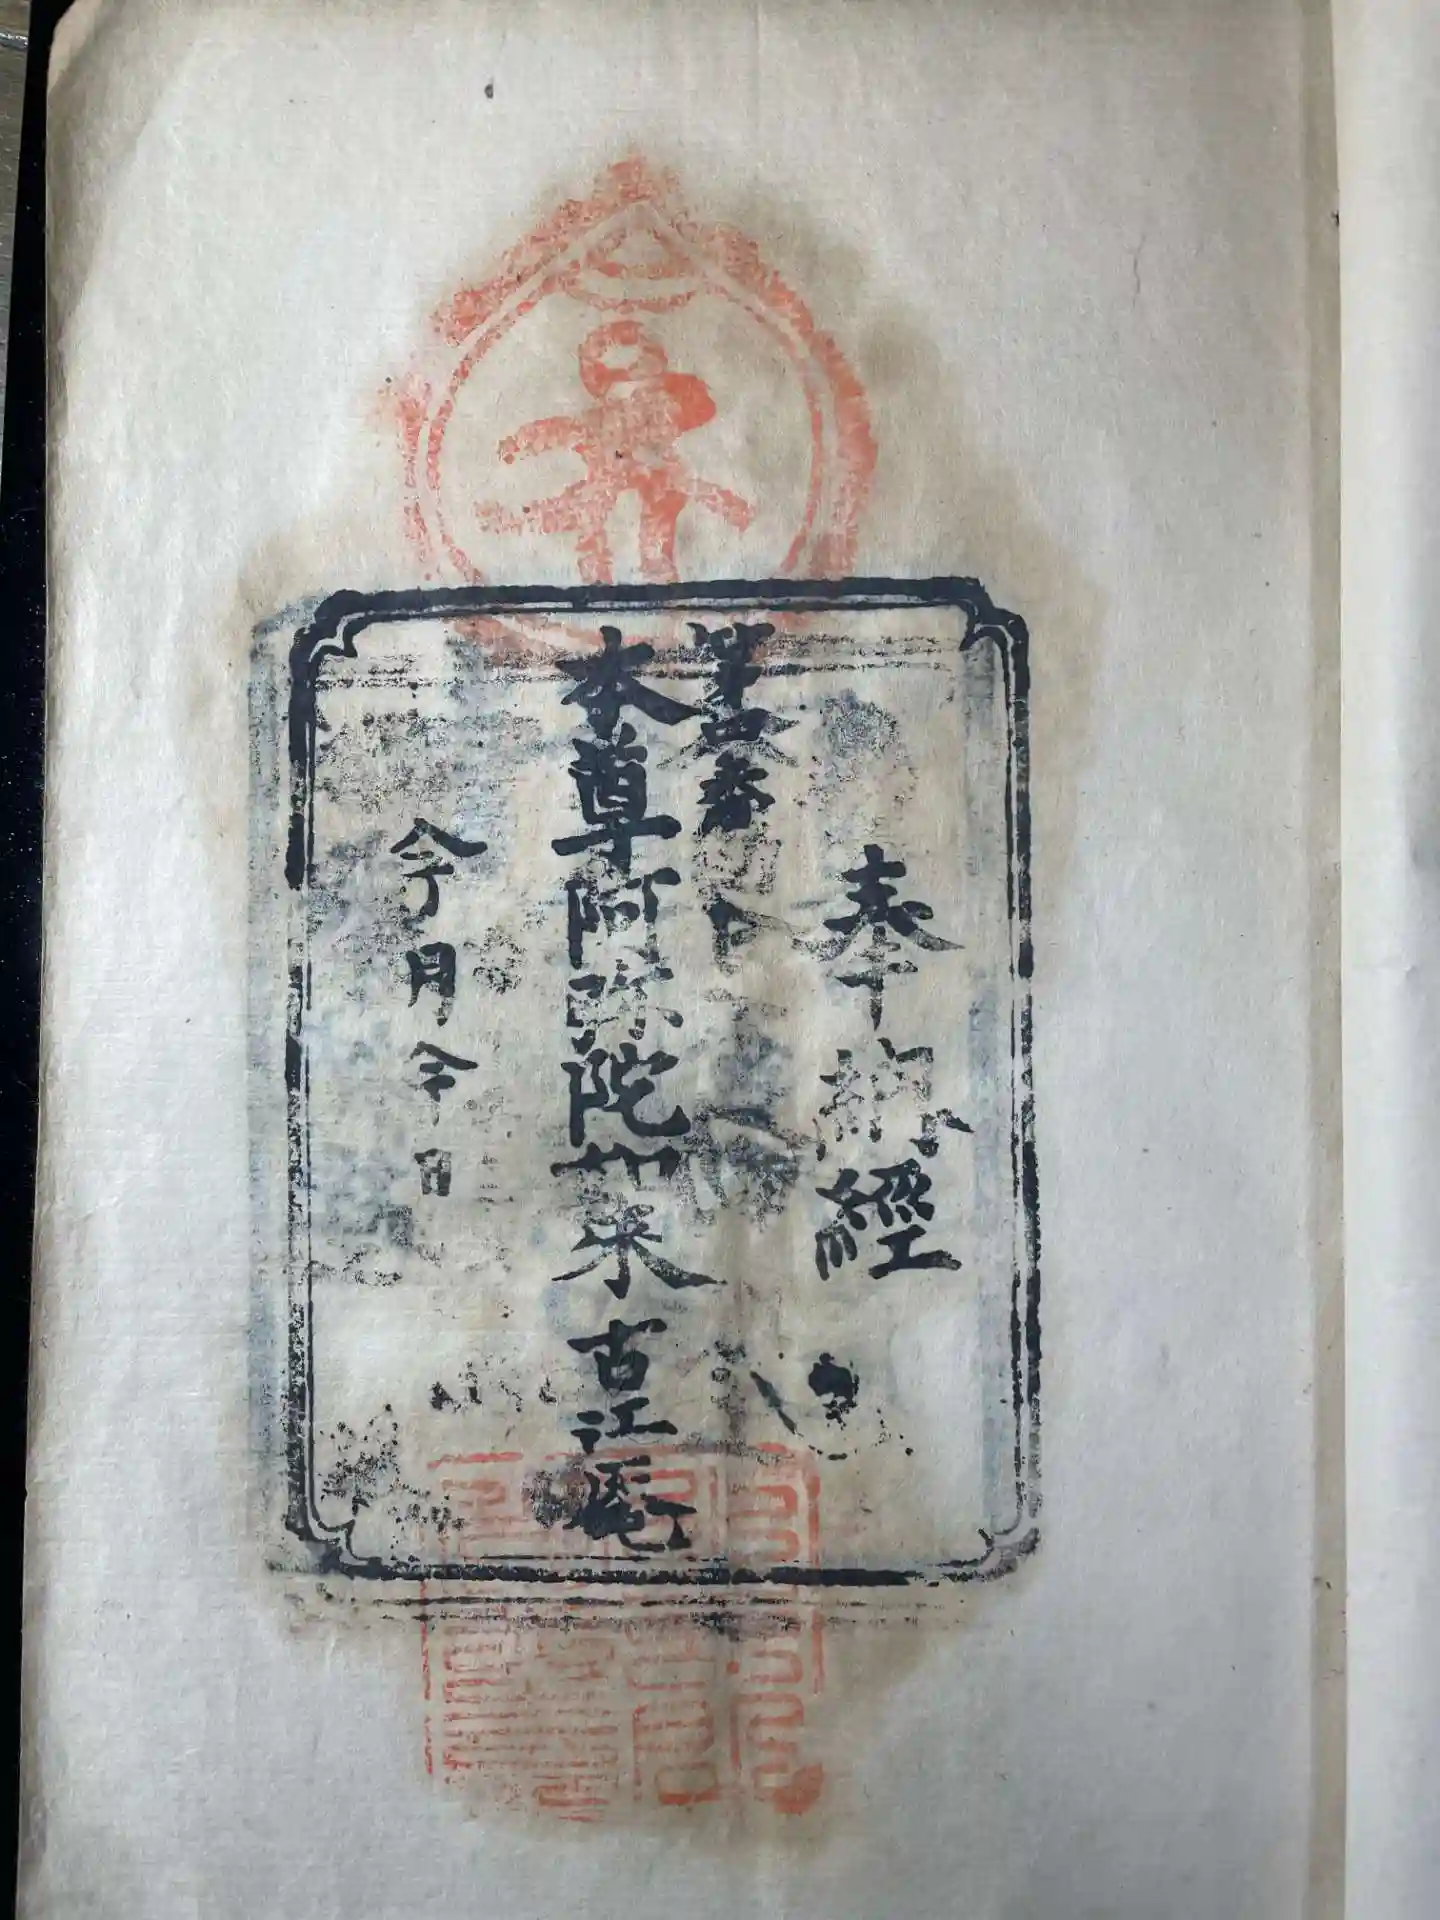 奉納經
第四番
本尊阿弥陀如来 古江庵
今月今日